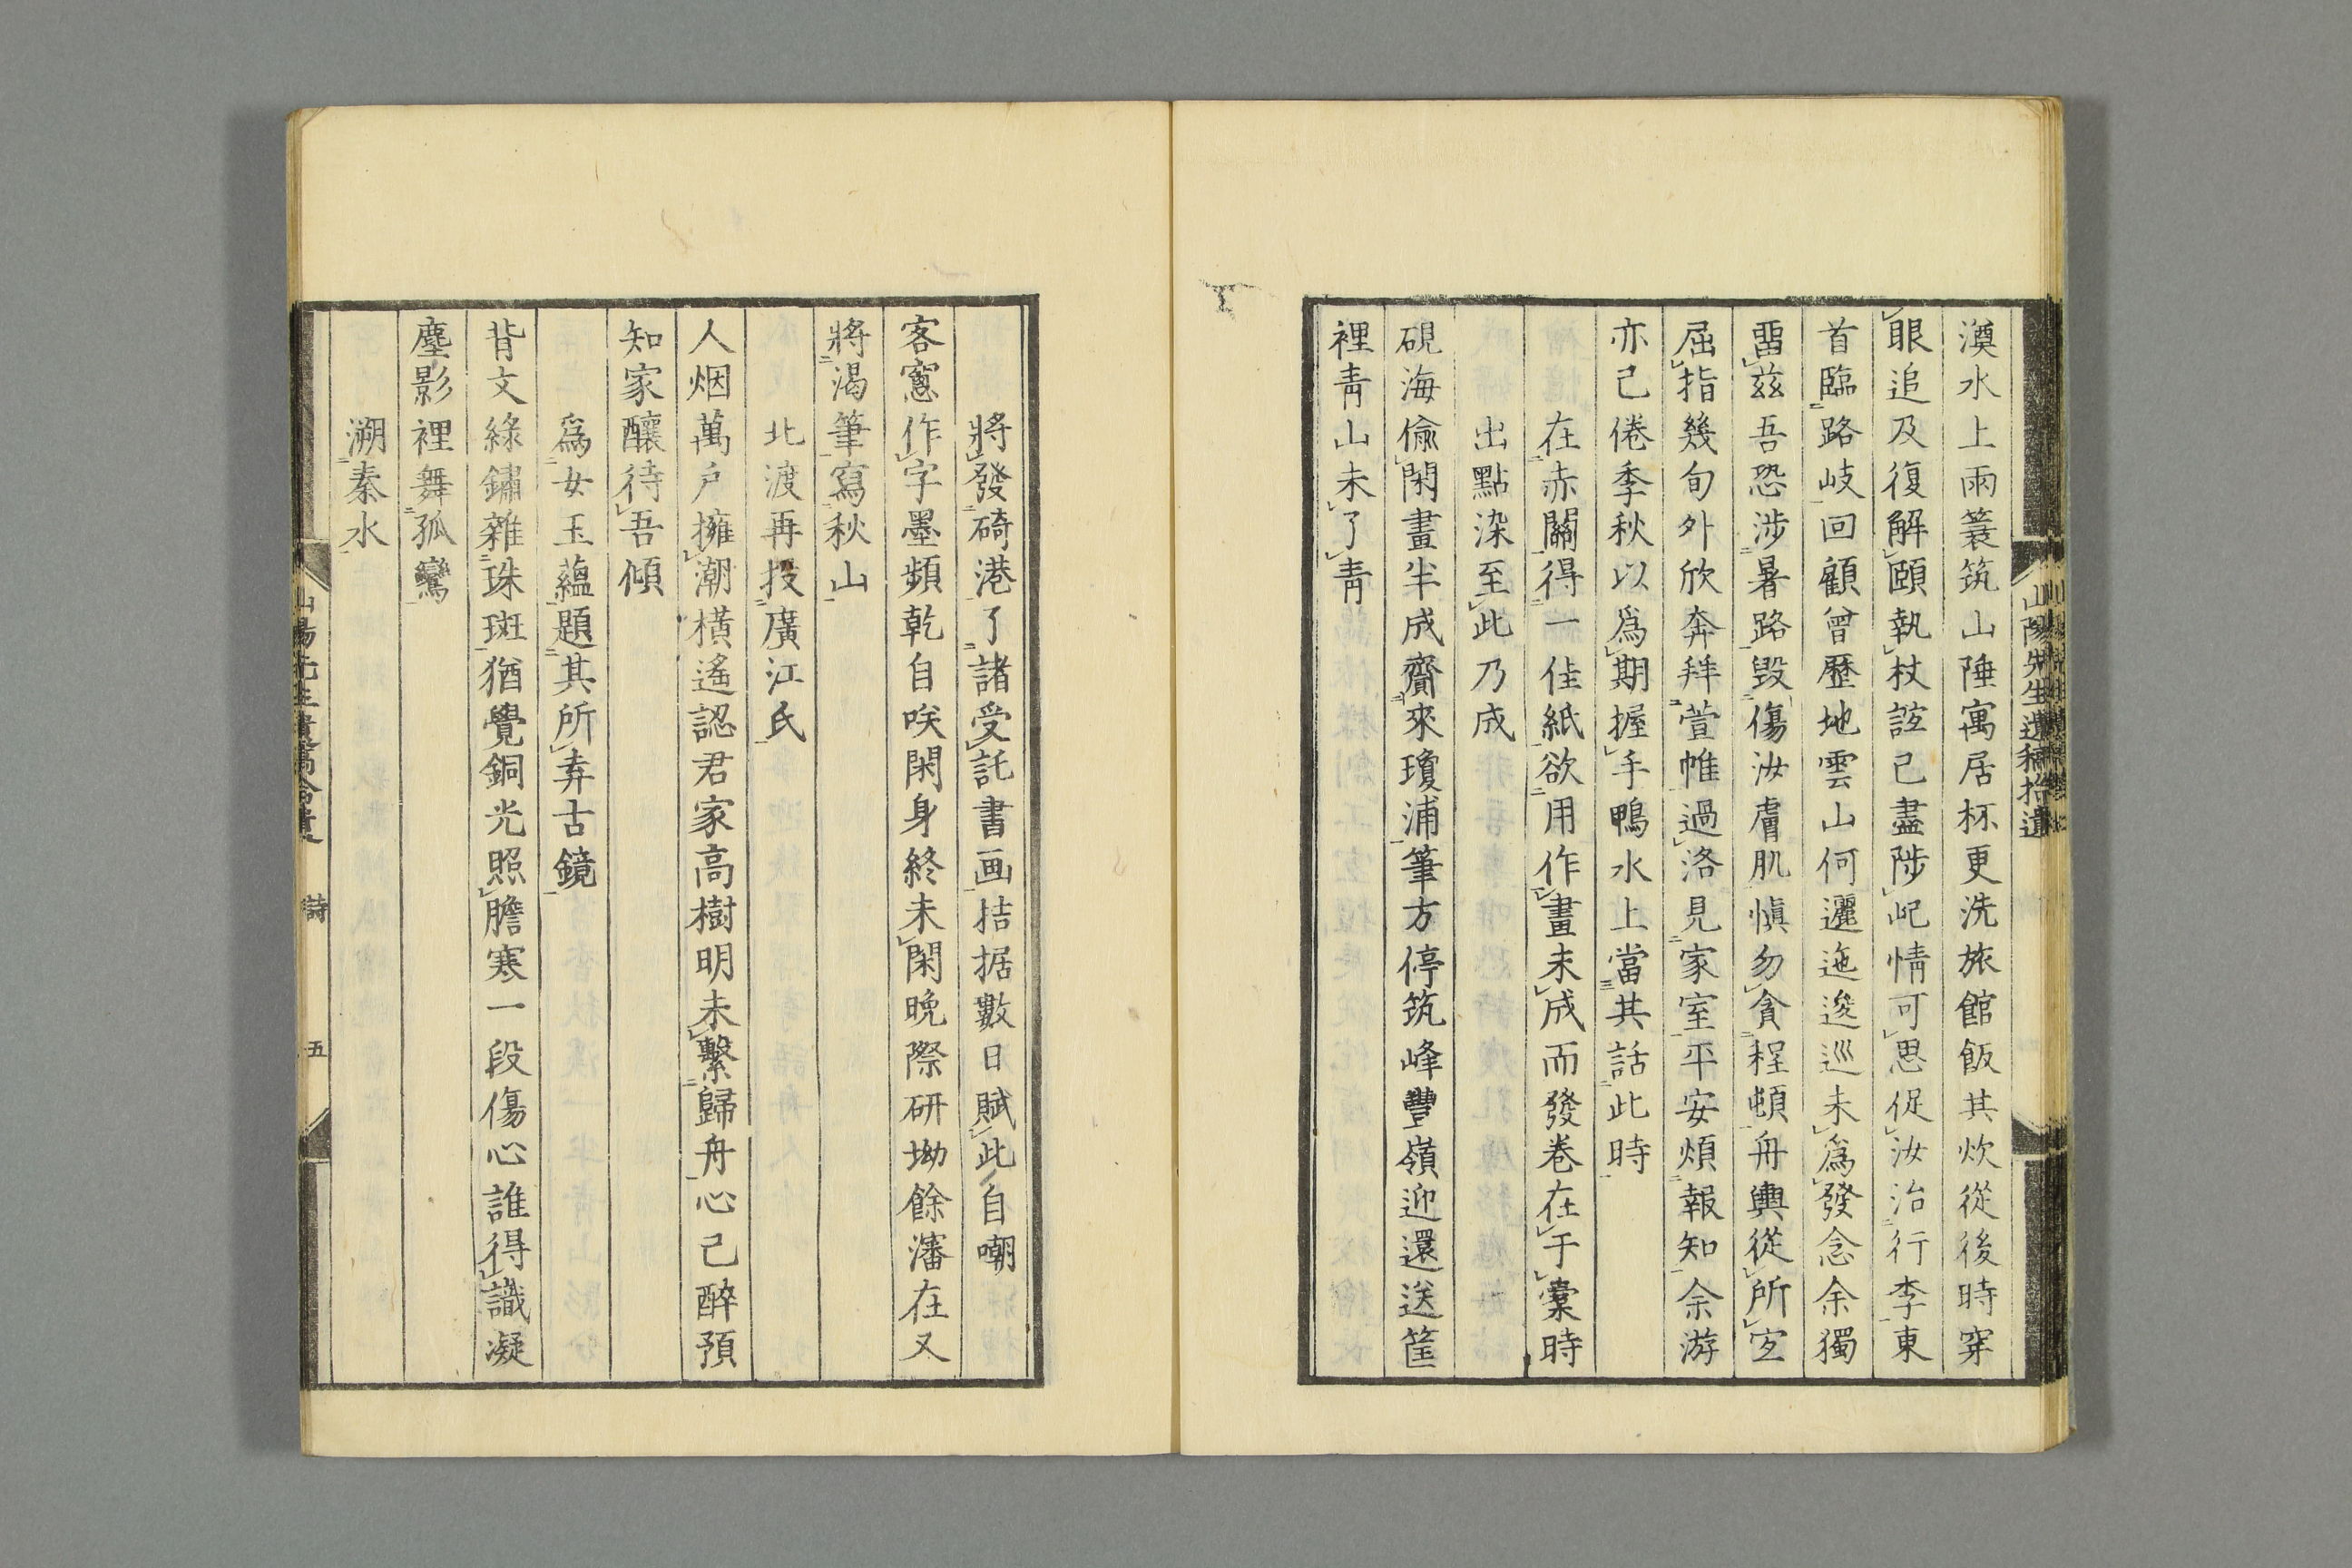 山陽先生遺稿拾遺
澳水上雨簑筑山陲寓居杯更洗旅館飯其炊從後時穿
眼追及復解頤執杖誼已盡陟屺情可思促汝治行李東
首臨路岐回顧曾歷地雲山何邐迤逡巡未爲發念余獨
畱茲吾恐涉暑路毀傷汝膚肌愼勿貪程頓舟輿從所宜
屈指幾旬外欣奔拜萱帷過洛見家室平安煩報知余游
亦已倦季秋以爲期握手鴨水上當其話此時
在赤關得一佳紙欲用作畫未成而發卷在于橐時
出點染至此乃成
硯海偸閑畫半成齎來瓊浦筆方停筑峰豐嶺迎還送筐
裡靑山未了靑
將發碕港了諸受託書画拮据數日賦此自嘲
客窻作字墨頻乾自咲閑身終未閑晩際研坳餘瀋在又
將渴筆寫秋山
北渡再投廣江氏
人烟萬戶擁潮橫遙認君家高樹明未繫歸舟心已醉預
知家釀待吾傾
爲女玉蘊題其所弆古鏡
背文綠鏽雜珠斑猶覺銅光照膽寒一段傷心誰得識凝
塵影裡舞孤鸞
溯秦水
山陽先生遺稿拾遺 詩 五